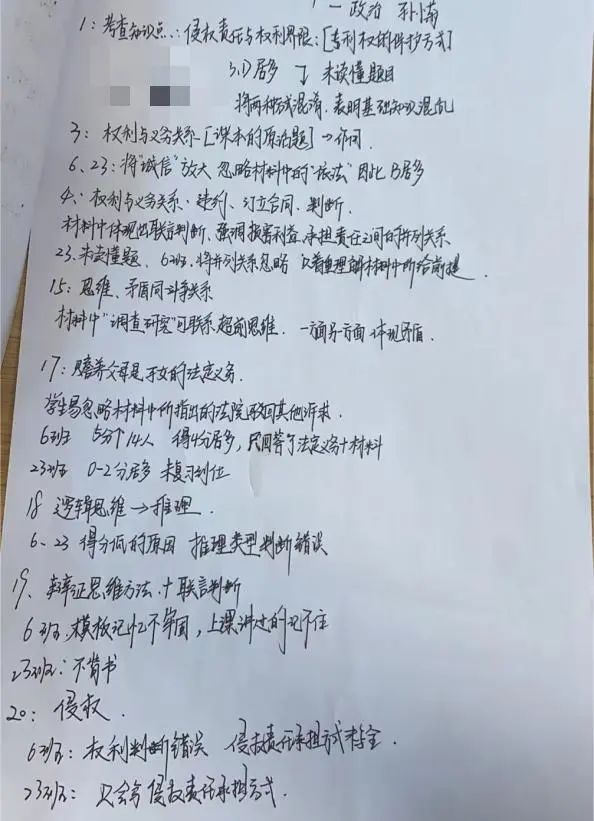 一政治 孙楠
1:考查知识点:侵权责任与权利界限:[专利权的保护方式]
3.D居多 未读懂题目
将两种方式混淆.表明基础知识混乱
3:权利与义务关系[课本的原话题]→作同
6、23:将“诚信”放大 忽略材料中的“依法”因此B居多
4、权利与义务关系.违约、订立合同.判断.
材料中体现出联言判断、强调损害利益、承担责任之间的并列关系
23.未读懂题、6班.将并列关系忽略 只着重理解材料中所给前提.
15:思维、矛盾同对等关系
材料中“调查研究”可联系超前思维.一方面另方面体现矛盾.
17:赡养父母是子女的法定义务.
学生易忽略材料中所指出的法院驳回其他诉求.
6班 5分个14人 得4分居多,只回答了法定义务+材料
23班 0-2分居多 未复习到位
18 逻辑思维→推理.
6、23 得分低的原因 推理类型判断错误
19、辩证思维方法.+联言判断
6班.模板记忆不牢固,上课讲过的记不住
23班:不背书
20:侵权.
6班:权利判断错误 侵权责任承担方式不全.
23班:只会写侵权责任承担方式.